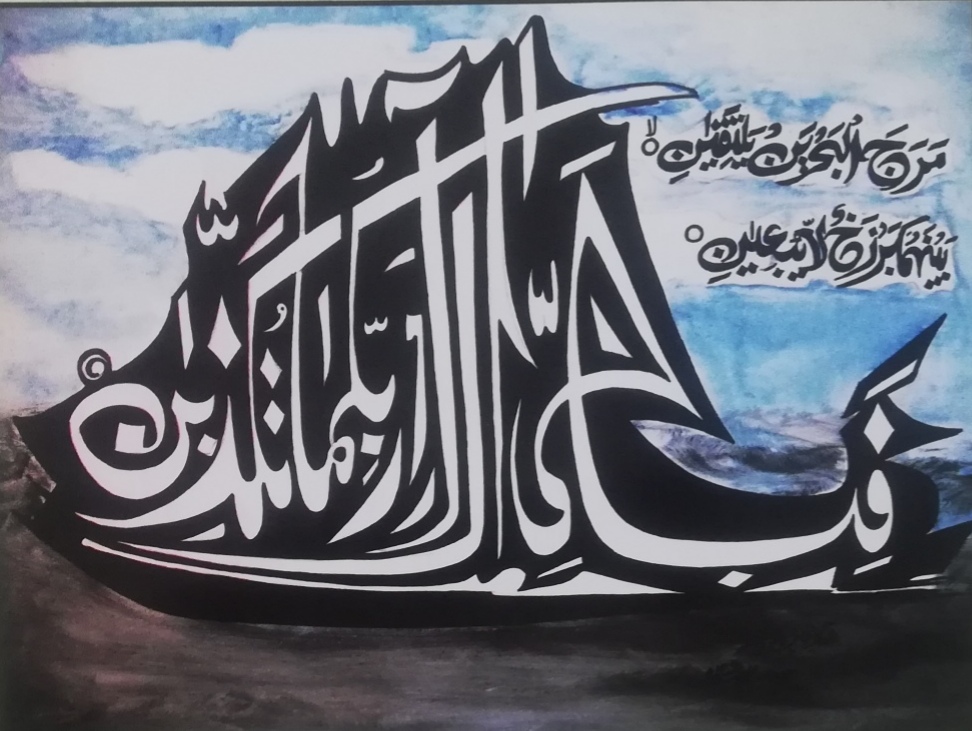 مَرَجَ الْبَحْرَيْنِ يَلْتَقِيٰنِ ۙ
بَيْنَهُمَا بَرْزَخٌ لَّا يَبْغِيٰنِ
فَبِاَيِّ اٰلَآءِ رَبِّكُمَا تُكَذِّبٰنِ